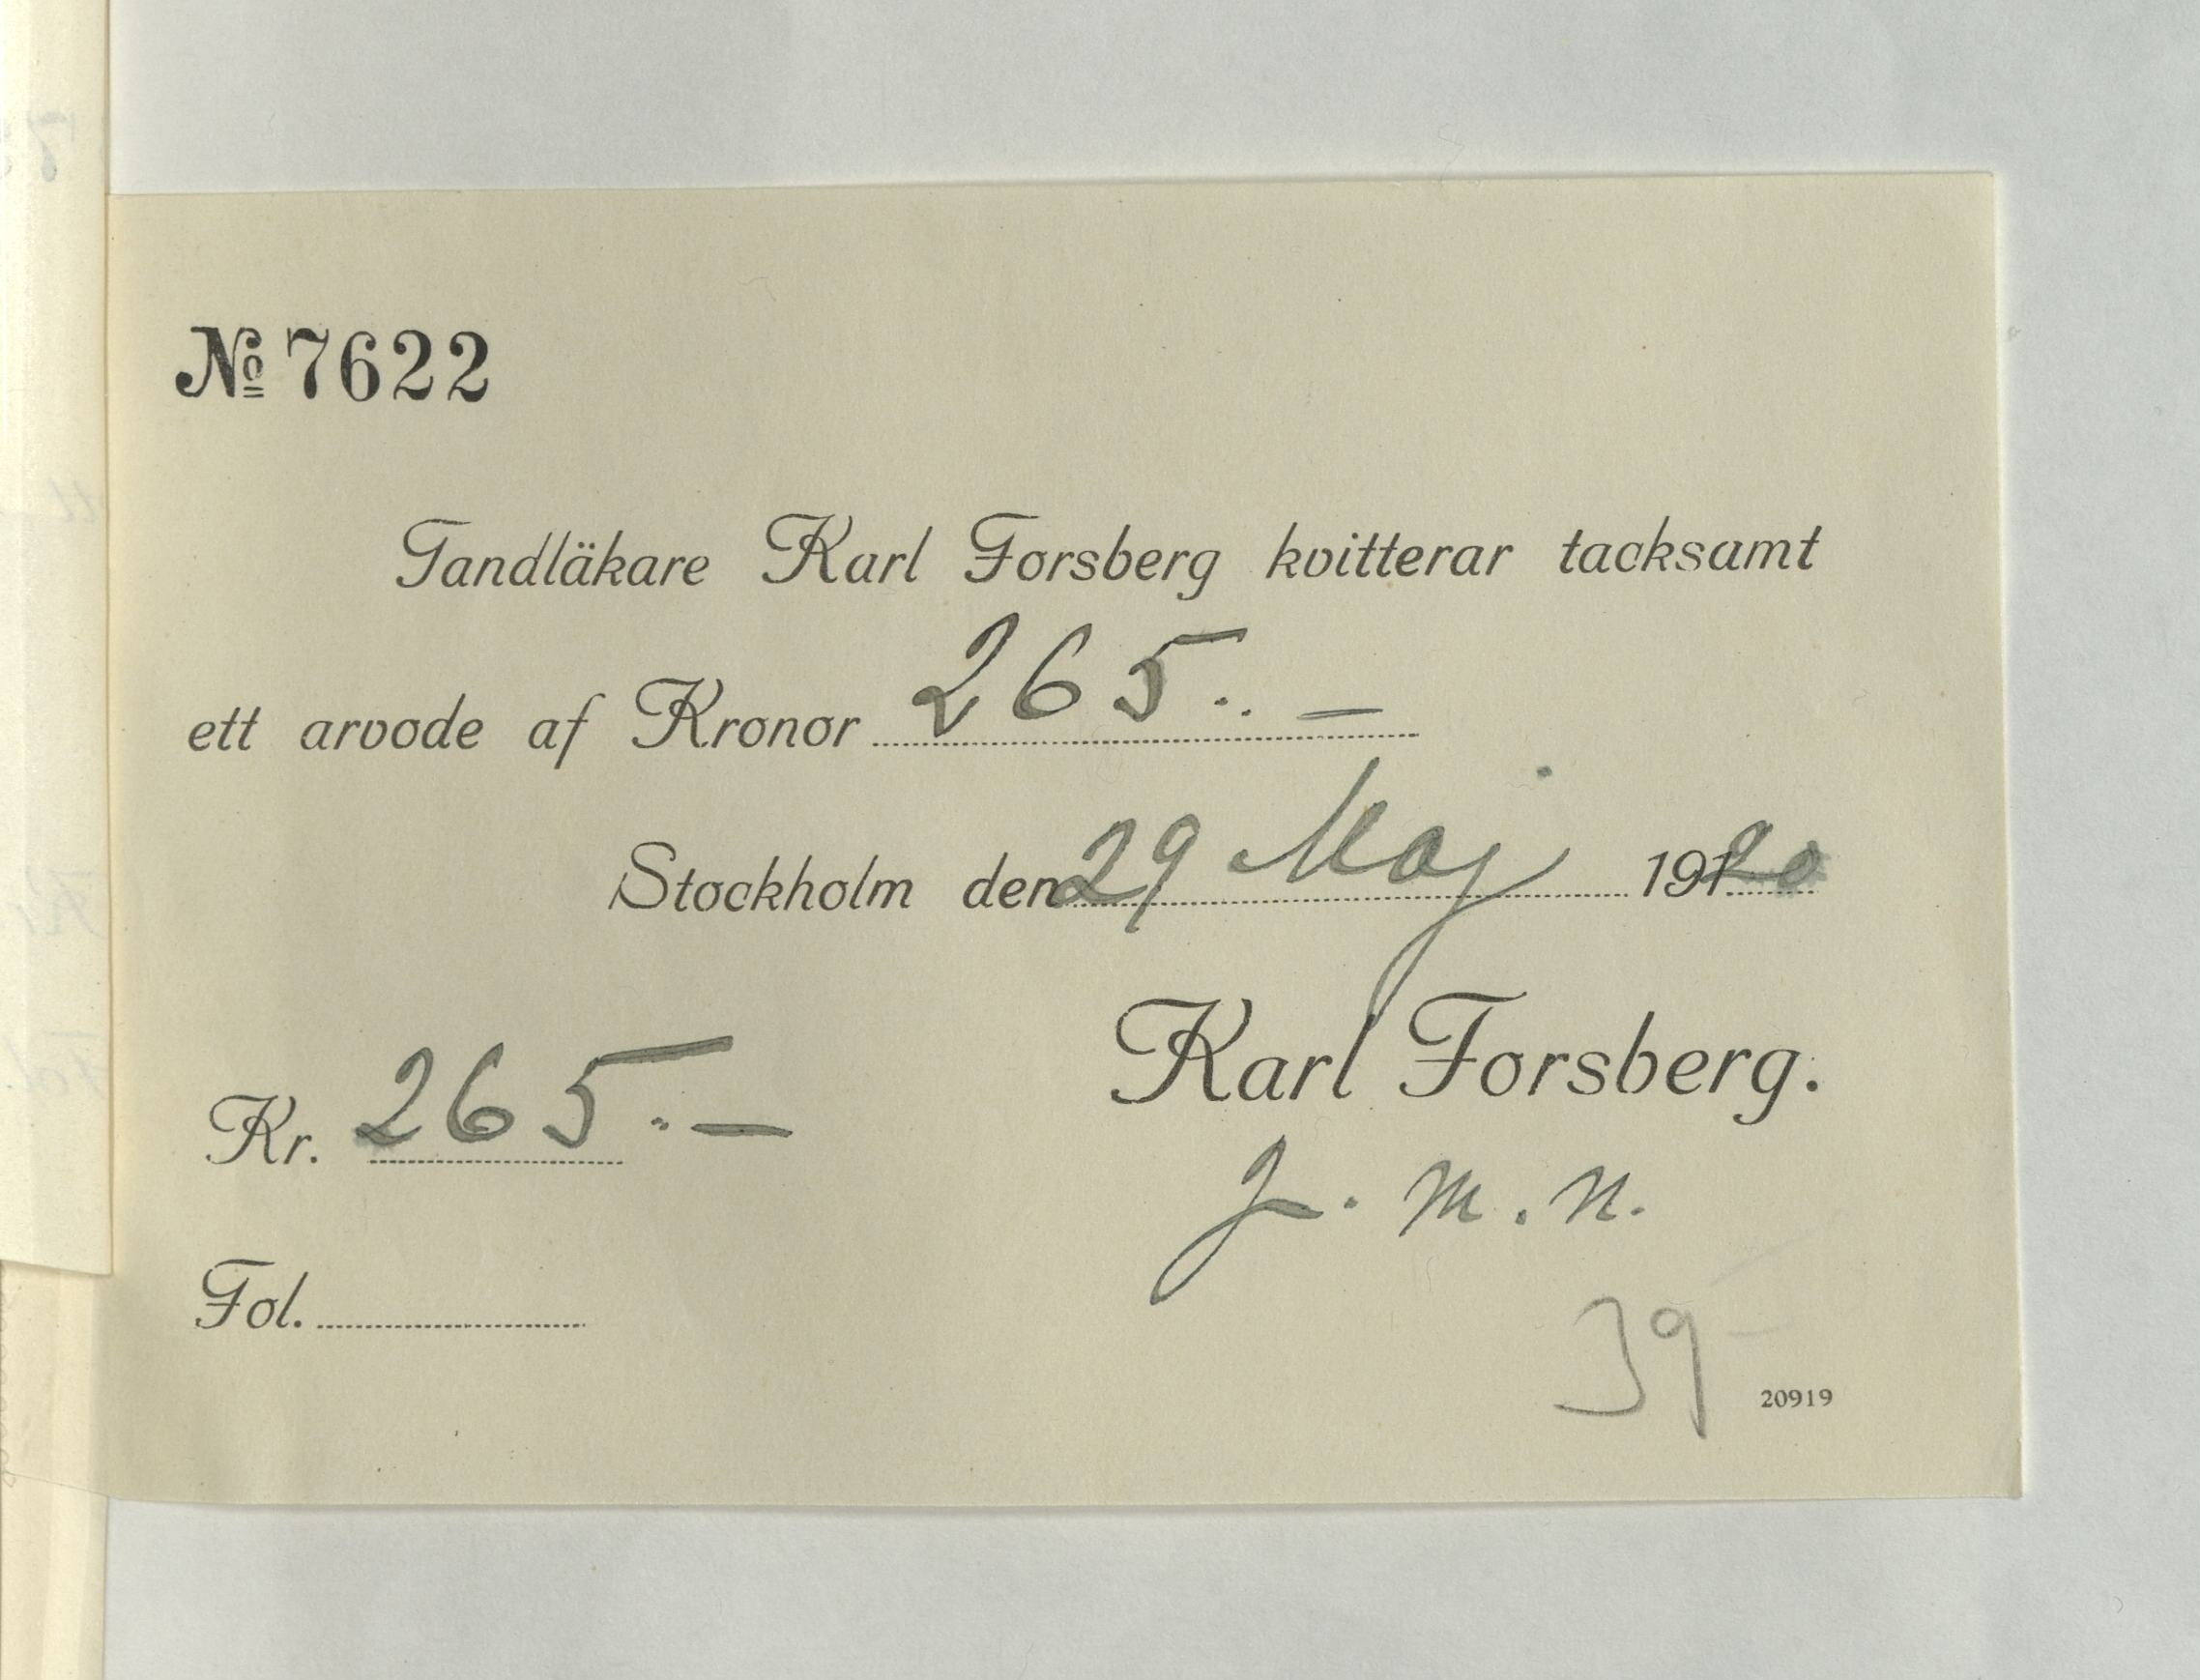 № 7622
Tandläkare Karl Forsberg kvitterar tacksamt
ett arvode af Kronor 265..—
Stockholm den 29 Maj 1920
Karl Forsberg.
Kr. 265.—
g. m. n.
Fol.
39
20919